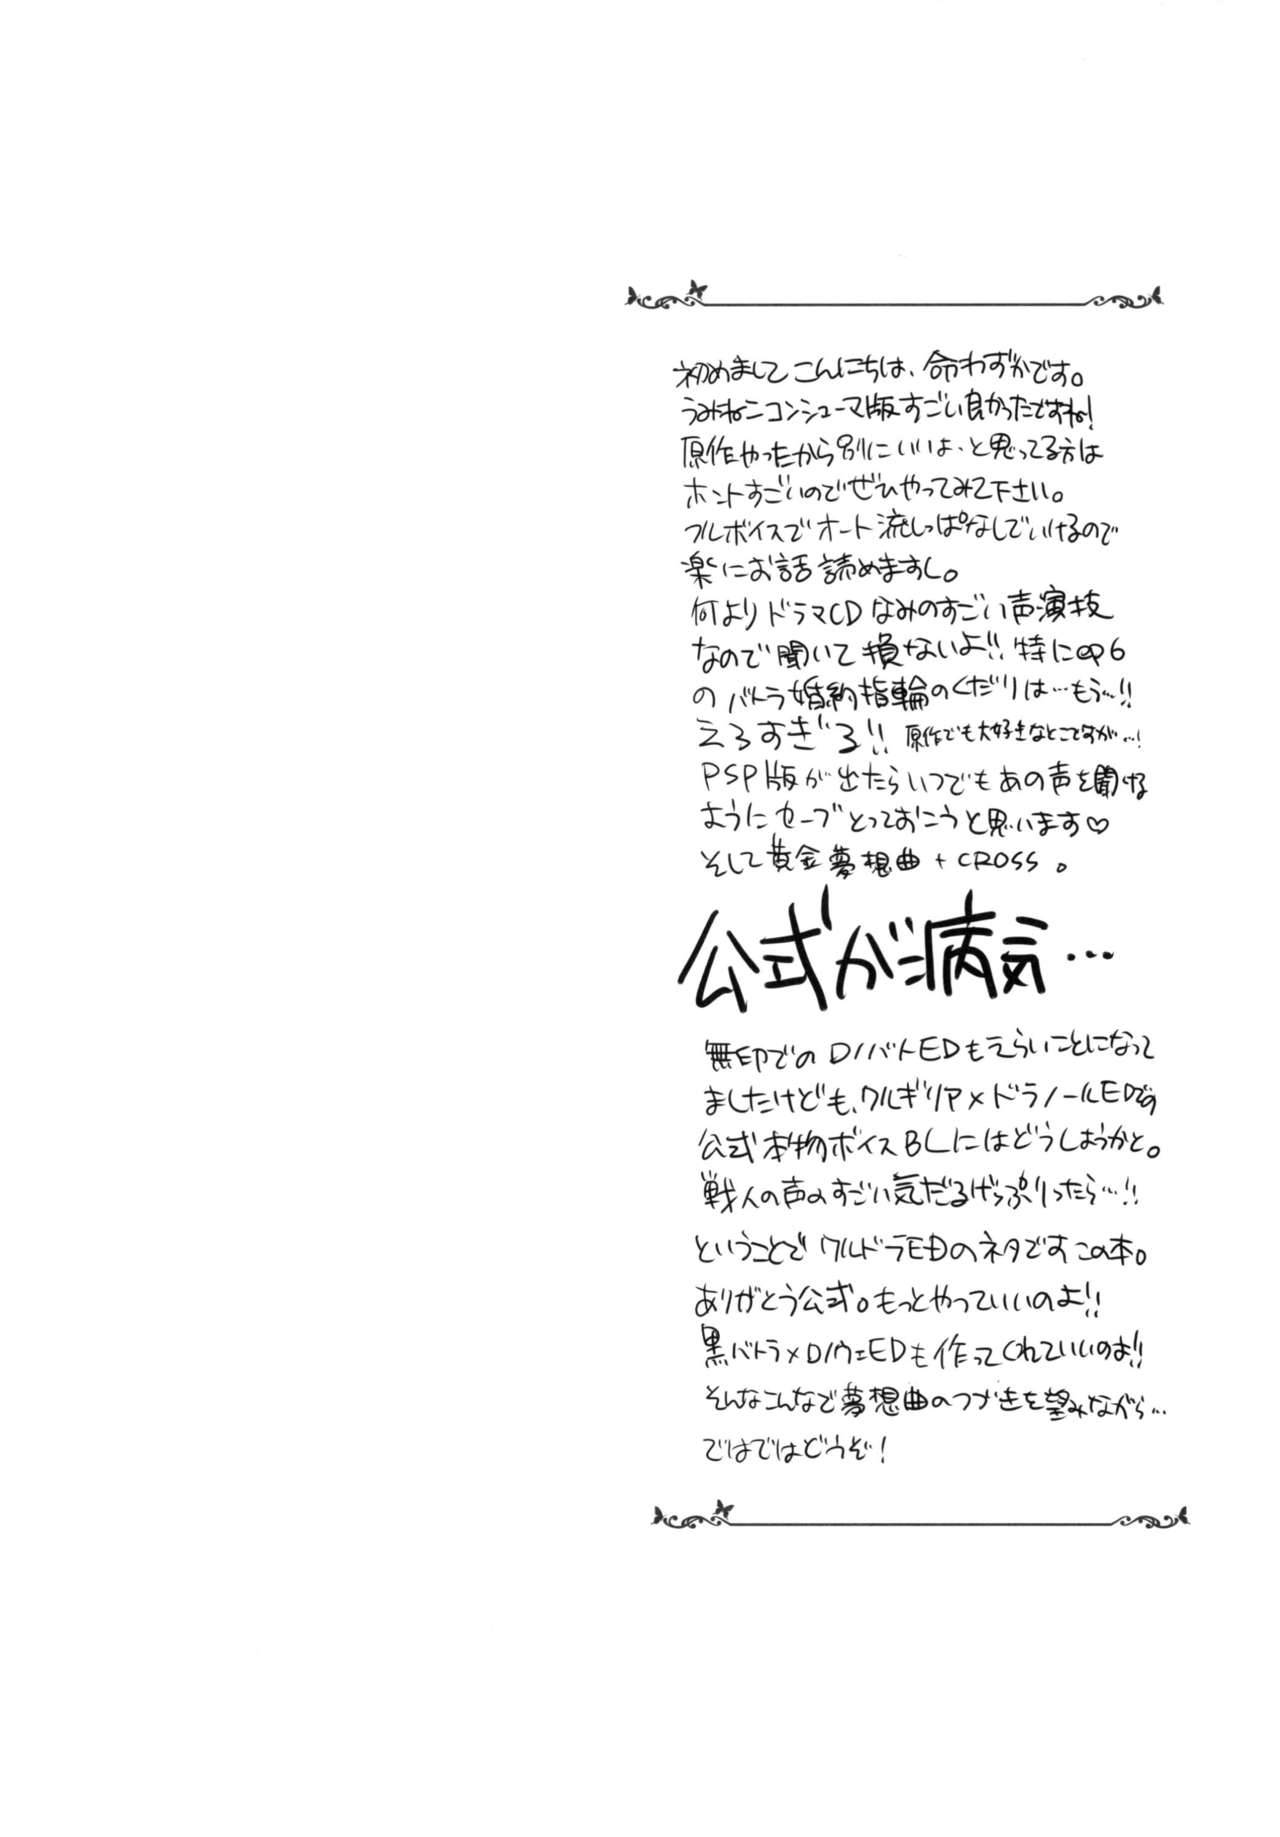 初めましてこんにちは、命わずかです。
うみねこコンシューマ版すごい良かったですね!
原作やったから別にいいよ、と思ってる方は
ホントすごいのでぜひやってみて下さい。
フルボイスでオート流しっぱなしでいけるので
楽にお話読めますし。
何よりドラマCDなみのすごい声演技
なので聞いて損ないよ!!特にep6
のバトラ婚約指輪のくだりは…もう…!!
えろすぎる!!原作でも大好きなとこですが…!
PSP版が出たらいつでもあの声を聞ける
ようにセーブとっておこうと思います♡
そして黄金夢想曲+CROSS。
公式が病気…
無印でのロノバトEDもえらいことになって
ましたけども、ワルギリア×ドラノールEDでの
公式本物ボイスBLにはどうしようかと。
戦人の声のすごい気だるげっぷりったら…!!
ということでワルドラEDのネタですこの本。
ありがとう公式。もっとやっていいのよ!!
黒バトラ×ロノウェEDも作ってくれていいのよ!!
そんなこんなで夢想曲のつづきを望みながら…
ではではどうぞ!